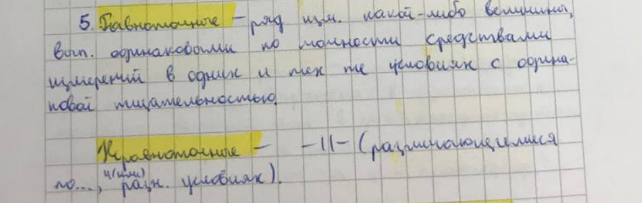 5. Равноточные – ряд изм. какой-либо величины,
вып. одинаковыми по точности средствами
измерений в одних и тех же условиях с одина-
ковой тщательностью.
Неравноточные – -||- (различающимися
по..., и(или) разн. условиях).